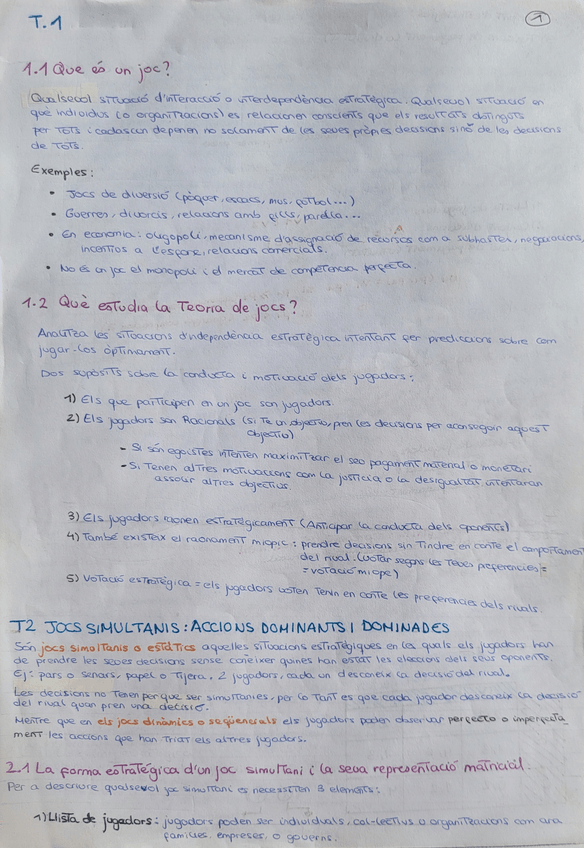 T.1
1
1.1 Que és un joc?
Qualsevol situació d'interacció o interdependència estratègica. Qualsevol situació en
què individus (o organitzacions) es relacionen conscients que els resultats obtinguts
per TOTS i cadascun depenen no solament de les seves pròpies decisions sinó de les decisions
de TOTS.
Exemples:
• Jocs de diversió (pòquer, escacs, mus, futbol...)
• Guerres, divorcis, relacions amb fills, parella...
• En economia: oligopoli, mecanisme d'assignació de recursos com a subhastes, negociacions,
incentius a l'esforç, relacions comercials.
• No és un joc el monopoli i el mercat de competència perfecta.
1.2 Què estudia la Teoria de jocs?
Analitza les situacions d'independència estratègica intentant fer prediccions sobre com
jugar-los òptimament.
Dos supòsits sobre la conducta i motivació dels jugadors:
1) Els que participen en un joc son jugadors.
2) Els jugadors son Racionals (si te un objectiu, pren les decisions per aconseguir aquest
objectiu)
- Si són egoistes intenten maximitzar el seu pagament material o monetari
- Si Tenen altres motivacions com la justícia o la desigualtat intentaran
assolir altres objectius.
3) Els jugadors raonen estratègicament (Anticipar la conducta dels oponents)
4) També existeix el raonament miopic: prendre decisions sin Tindre en conte el comportament
del rival. (votar segons les teves preferencies) =
= votació miope)
5) Votació estratègica = els jugadors voten Tenin en conte les preferencies dels rivals.
T2 JOCS SIMULTANIS: ACCIONS DOMINANTS I DOMINADES
Són jocs simultanis o estàtics aquelles situacions estratègiques en les quals els jugadors han
de prendre les seves decisions sense conèixer quines han estat les eleccions dels seus oponents.
Ej: pars o senars, papel o Tijera, 2 jugadors, cada un desconeix la decisió del rival.
Les decisions no Tenen per que ser simultanies, per lo Tant es que cada jugador desconeix la decisió
del rival quan pren una decisió.
Mentre que en els jocs dinàmics o seqüencials els jugadors poden observar perfecta o imperfecta
ment les accions que han Triat els altres jugadors.
2.1 La forma estratègica d'un joc simultani i la seva representació matricial.
Per a descriure qualsevol joc simultani es necessiten 3 elements:
1) Llista de jugadors: jugadors poden ser individuals, col·lectius o organitzacions com ara
famílies, empreses, o governs.